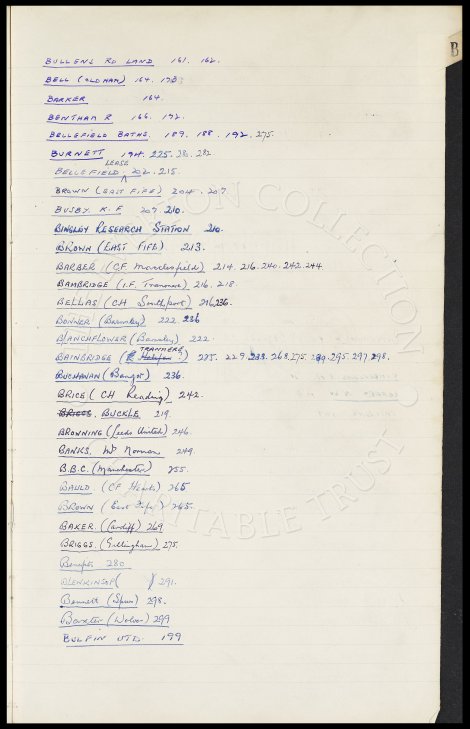 B
BULLENS RD LAND 161. 162.
BELL (OLDHAM) 164. 178
BARKER 164.
BENTHAM R 166. 172.
BELLEFIELD BATHS. 189. 188. 192. 275.
BURNETT 194. 225. 281. 282
BELLEFIELD LEASE 202. 215.
BROWN (EAST FIFE) 204. 207.
BUSBY. K. F 207. 210.
BINGLEY RESEARCH STATION 210.
BROWN (EAST FIFE) 213.
BARBER (CF Macclesfield) 214. 216. 240. 242. 244.
BAMBRIDGE (I.F. Tranmere) 216. 218.
BELLAS (CH Southport) 236.
BONNER (Barnsley) 222. 236
BLANCHFLOWER (Barnsley) 222.
BAINBRIDGE (TRANMERE) 225. 229. 233. 268. 275. 289. 295. 297. 298.
BUCHANAN (Bangor) 236.
BRICE (CH Reading) 242.
BRIGGS. BUCKLE 219.
BROWNING (Leeds United) 246.
BANKS. Mr Norman 249.
B.B.C. (Manchester) 255.
BAULD (CF Hearts) 265
BROWN (East Fife) 265.
BAKER. (Cardiff) 269
BRIGGS. (Gillingham) 275.
Benefits 280
BLENKINSOP ( ) 291.
Bennett (Spurs) 298.
Baxter (Wolves) 299
BELFIN LTD. 199
WATERMARK: COLLECTION
CHARITABLE TRUST